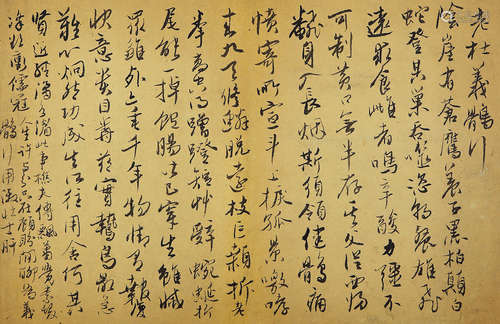 老杜義鶻行
陰崖有蒼鷹養子黑柏顛白
蛇登其巢吞噬恣朝餐雄飛
遠求食雌者鳴辛酸力彊不
可制黃口無半存其父從西歸
翻身入長煙斯須領健鶻痛
憤寄所宣斗上捩孤噭哮
來九天修鱗脫遠枝巨顙折老
拳高空得蹭蹬短草辭蜿蜒折
尾能一掉飽腸皆已穿生雖滅
眾雛死亦垂千年物情有報復
快意貴目前茲實鷙鳥最急
難心炯然功成失所往用舍何其
賢近經潏水湄此事樵夫傳飄蕭覺素髮
凜欲衝儒冠人生許與分只在顧盼間聊為義
鶻行用激壯士肝